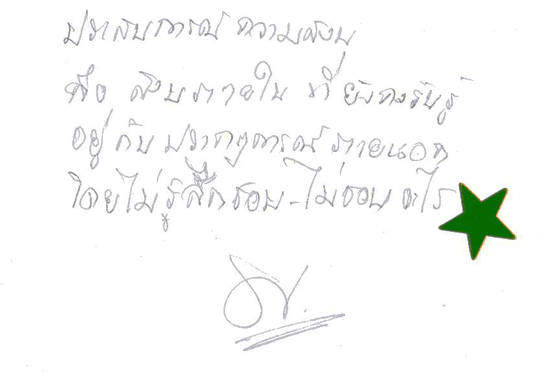 ประสบการณ์ ความสงบ
คือ สงบภายใน ที่ ยังคงรับรู้
อยู่ กับ ปรากฏการณ์ ภายนอก
โดยไม่รู้สึกชอบ-ไม่ชอบ อะไร